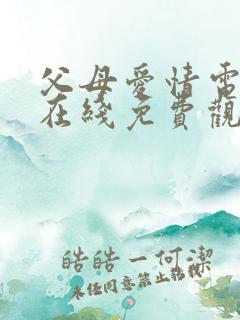 父母愛情電
在綫免費觀
皓皓一何潔
未经同意禁止转载